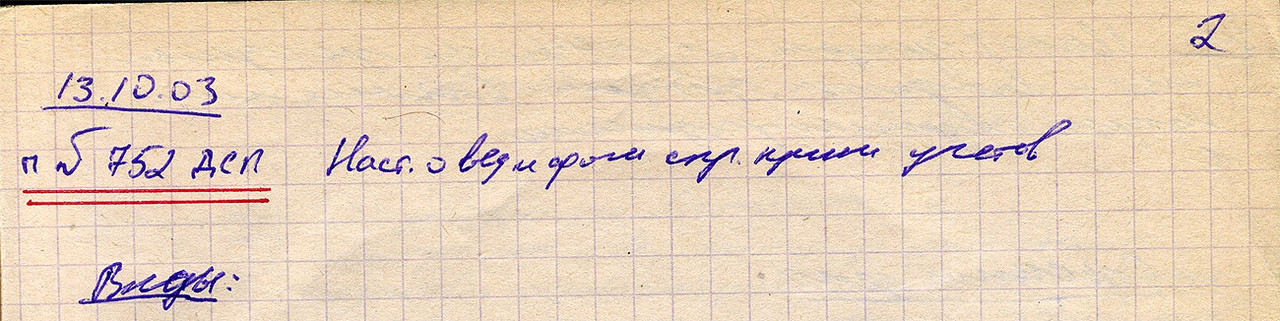 2
13.10.03
п № 752 ДСП Наст. о вед и форм спр. крим учетов
Виды: